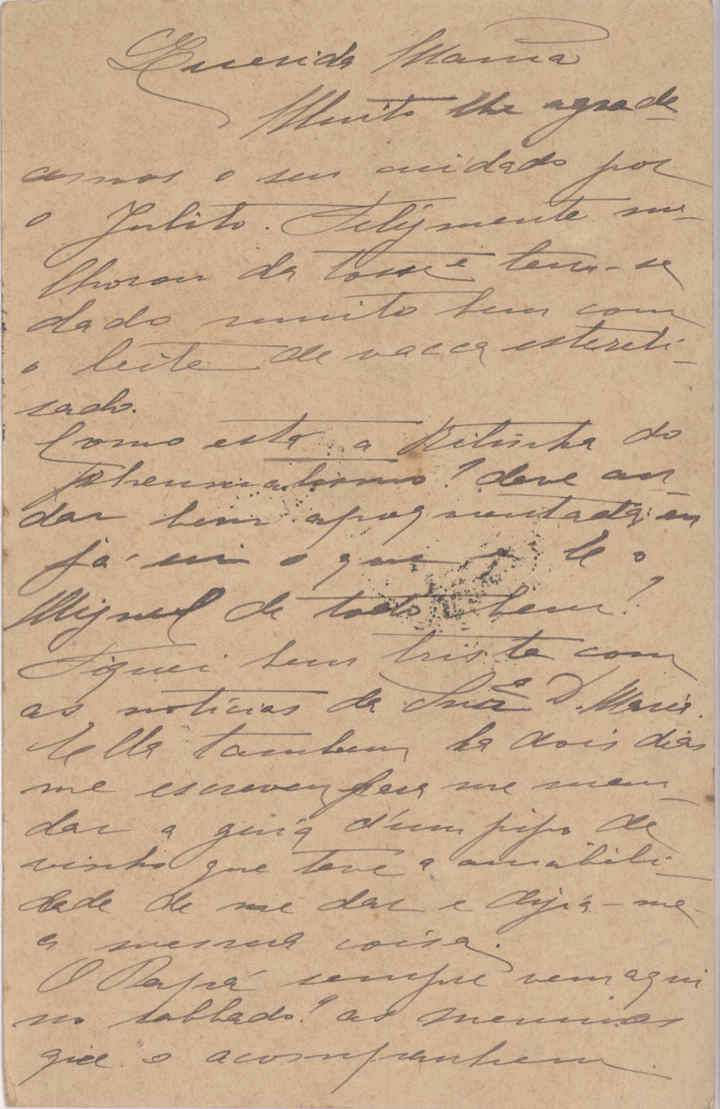 Querida Mamã
Muito lhe agrade-
cemos o seu cuidado por
o Julito. Felizmente me-
lhorou da tosse e tem-se
dado muito bem com
o leite de vacca estereli-
sado.
Como está a Ritinha do
rheumatismo? deve an-
dar bem apoquentada, eu
já sei o que é. E o
Miguel de todo bem?
Fiquei bem triste com
as noticias da Snra D. Maria.
Ella tambem ha dois dias
me escreveu para me man-
dar a guia d'um pipo de
vinho que teve a amabili-
dade de me dar e dizia-me
a mesma coisa.
O Papá sempre vem aqui
no sabbado? as meninas
que o acompanhem.